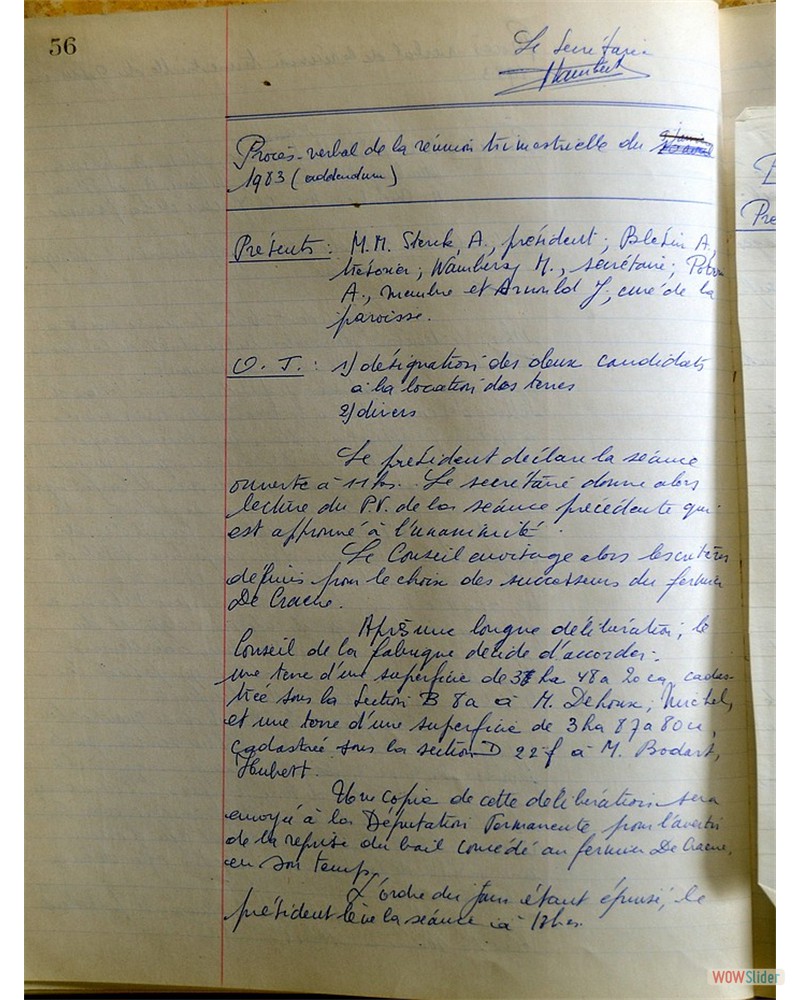 56
Le Secrétaire
Procès-verbal de la réunion trimestrielle du
1983 (addendum)
Présents : M.M. Sterck, A., président ; Blétin A.,
trésorier ; Wambersy M., secrétaire ;
A., membre et Arnould J., curé de la
paroisse.
O. J. : 1) désignation des deux candidats
à la location des terres
2) divers
Le président déclare la séance
ouverte à 11 hs. Le secrétaire donne alors
lecture du P.V. de la séance précédente qui
est approuvé à l'unanimité.
Le Conseil envisage alors les critères
définis pour le choix des successeurs du fermier
De Craene.
Après une longue délibération, le
Conseil de la fabrique décide d'accorder :
une terre d'une superficie de 3 ha 48 a 20 ca, cadas-
trée sous la section B 8a à M. Dehoux, Michel,
et une terre d'une superficie de 3 ha 87 a 80 ca,
cadastrée sous la section D 22 f à M. Bodart,
Hubert.
Une copie de cette délibération sera
envoyé à la Députation Permanente pour l'avertir
de la reprise du bail concédé au fermier De Craene,
en son temps.
L'ordre du jour étant épuisé, le
président lève la séance à 12 hes.
WOWSlider